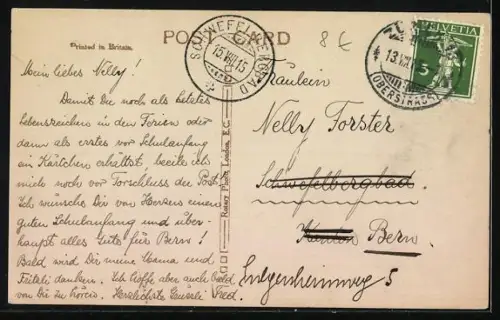 POST CARD
8 €
Printed in Britain.
SCHWEFELBERGBAD
15.VIII.15
13.VIII.
(OBERSTRASS)
HELVETIA
5
Mein liebes Nelly!
Damit Du noch als letztes
Lebenszeichen in den Ferien oder
dann als erstes vor Schulanfang
ein Kärtchen erhältst beeile ich
mich noch vor Torschluss der Post.
Ich wünsche Dir von Herzen einen
guten Schulanfang und über-
haupt alles Gute für Bern!
Bald wird Dir meine Mama und
danken. Ich hoffe aber auch bald
von Dir zu hören. Herzlichste
Rotary Photo, London, E.C.
Fräulein
Nelly Forster
Schwefelbergbad.
Kanton Bern.
5